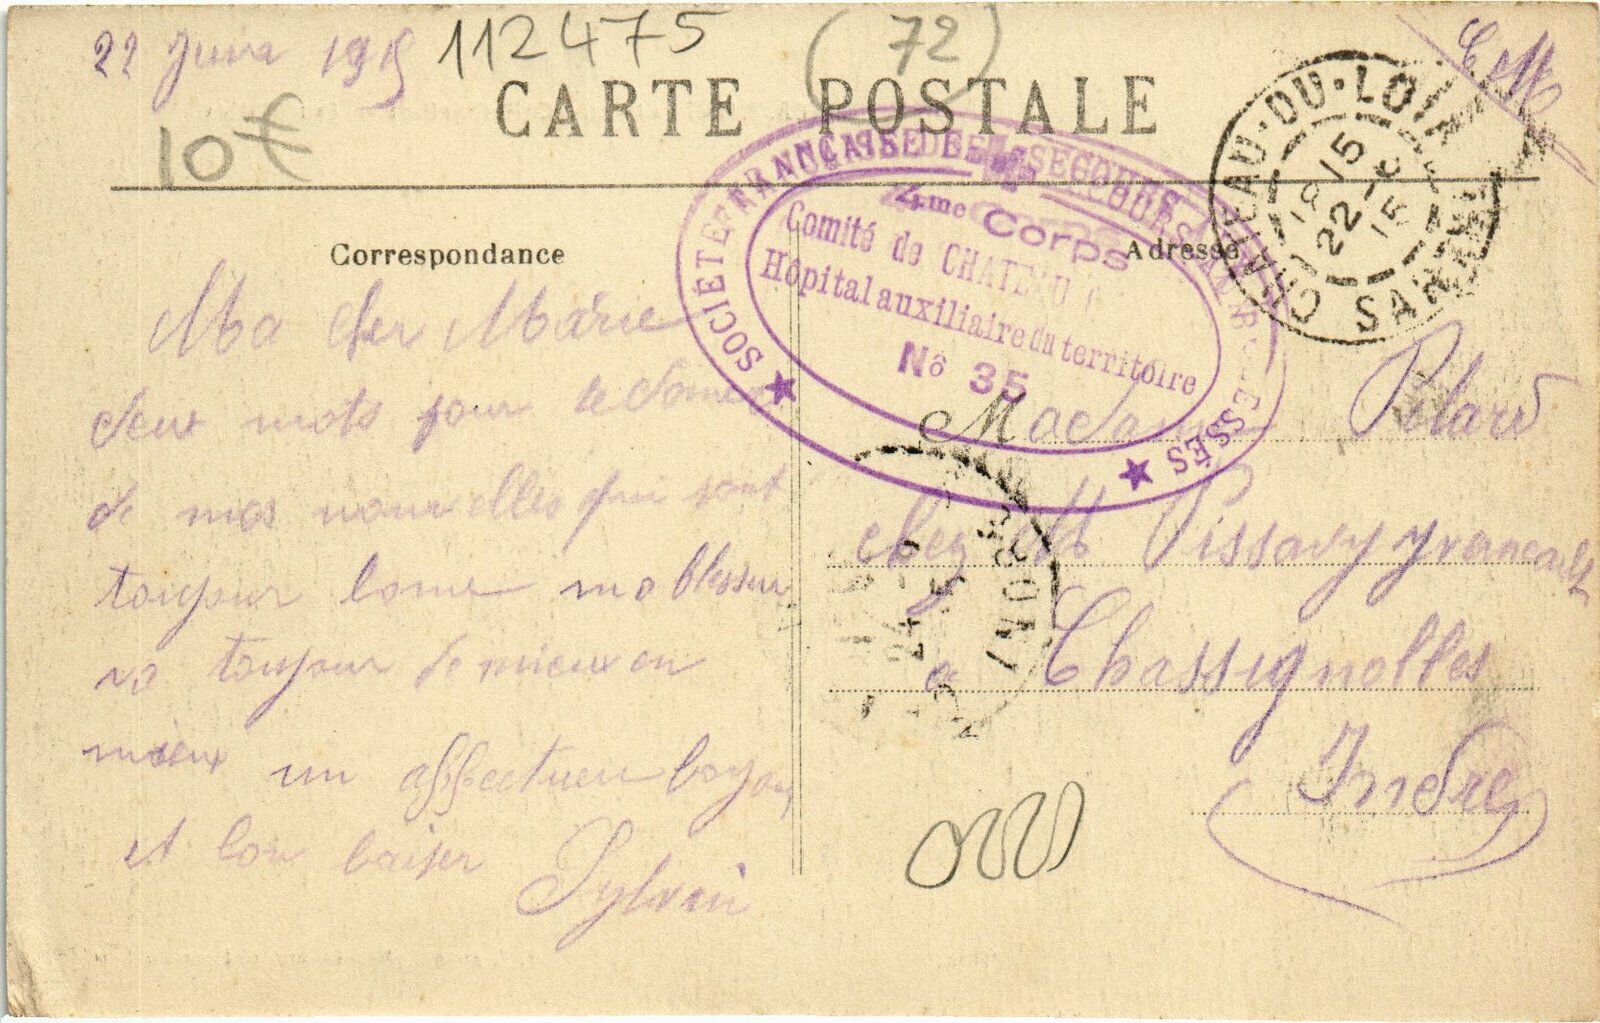 22 Juin 1915
112475
(72)
10€
CARTE POSTALE
F M
CHATEAU-DU-LOIR
18 15
22-6
15
SARTHE
SOCIÉTÉ FRANÇAISE DE SECOURS AUX BLESSÉS
4me Corps
Comité de CHATEAU
Hôpital auxiliaire du territoire
Nº 35
Correspondance
Adresse
Ma Cher Marie
deux mots pour te donner
de mes nouvelles qui sont
toujour bonne ma blessur
va toujour de mieux en
mieux un affectueu
et bon baiser
Sylvain
Madame Pilard
chez M Pissavy yvernault
a Chassignolles
Indre
24-6